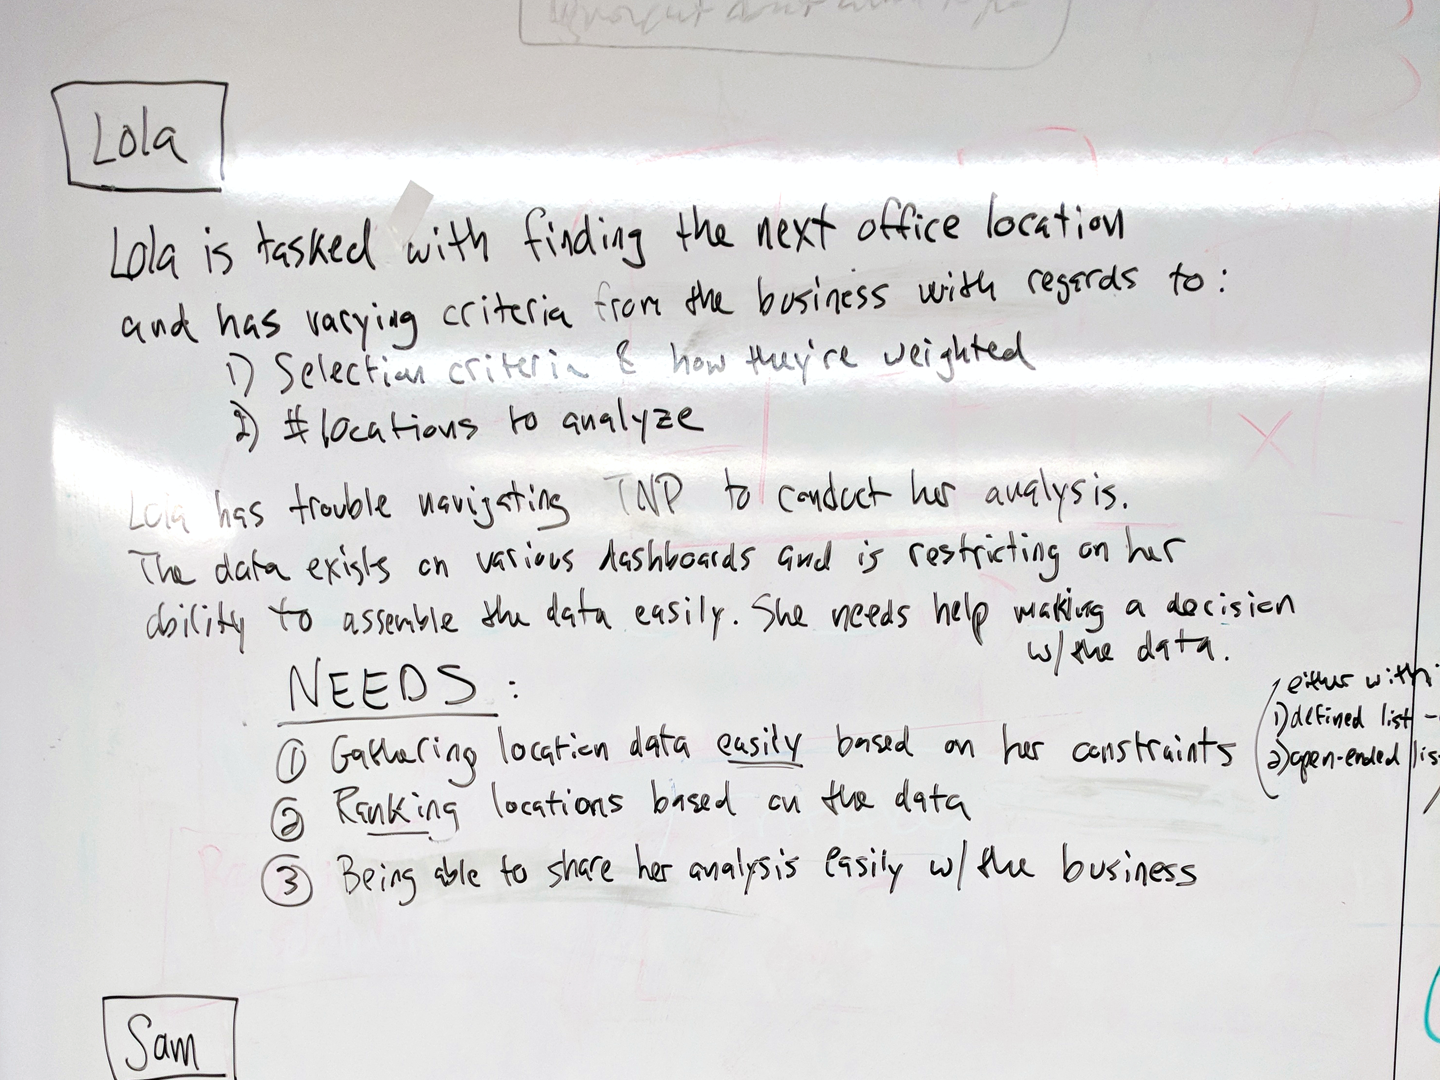 Lola
Lola is tasked with finding the next office location
and has varying criteria from the business with regards to:
1) Selection criteria & how they're weighted
2) # locations to analyze
Lola has trouble navigating TNP to conduct her analysis.
The data exists on various dashboards and is restricting on her
ability to assemble the data easily. She needs help making a decision
w/ the data.
NEEDS:
either with
1) defined list -
2) open-ended lis
① Gathering location data easily based on her constraints
② Ranking locations based on the data
③ Being able to share her analysis easily w/ the business
Sam